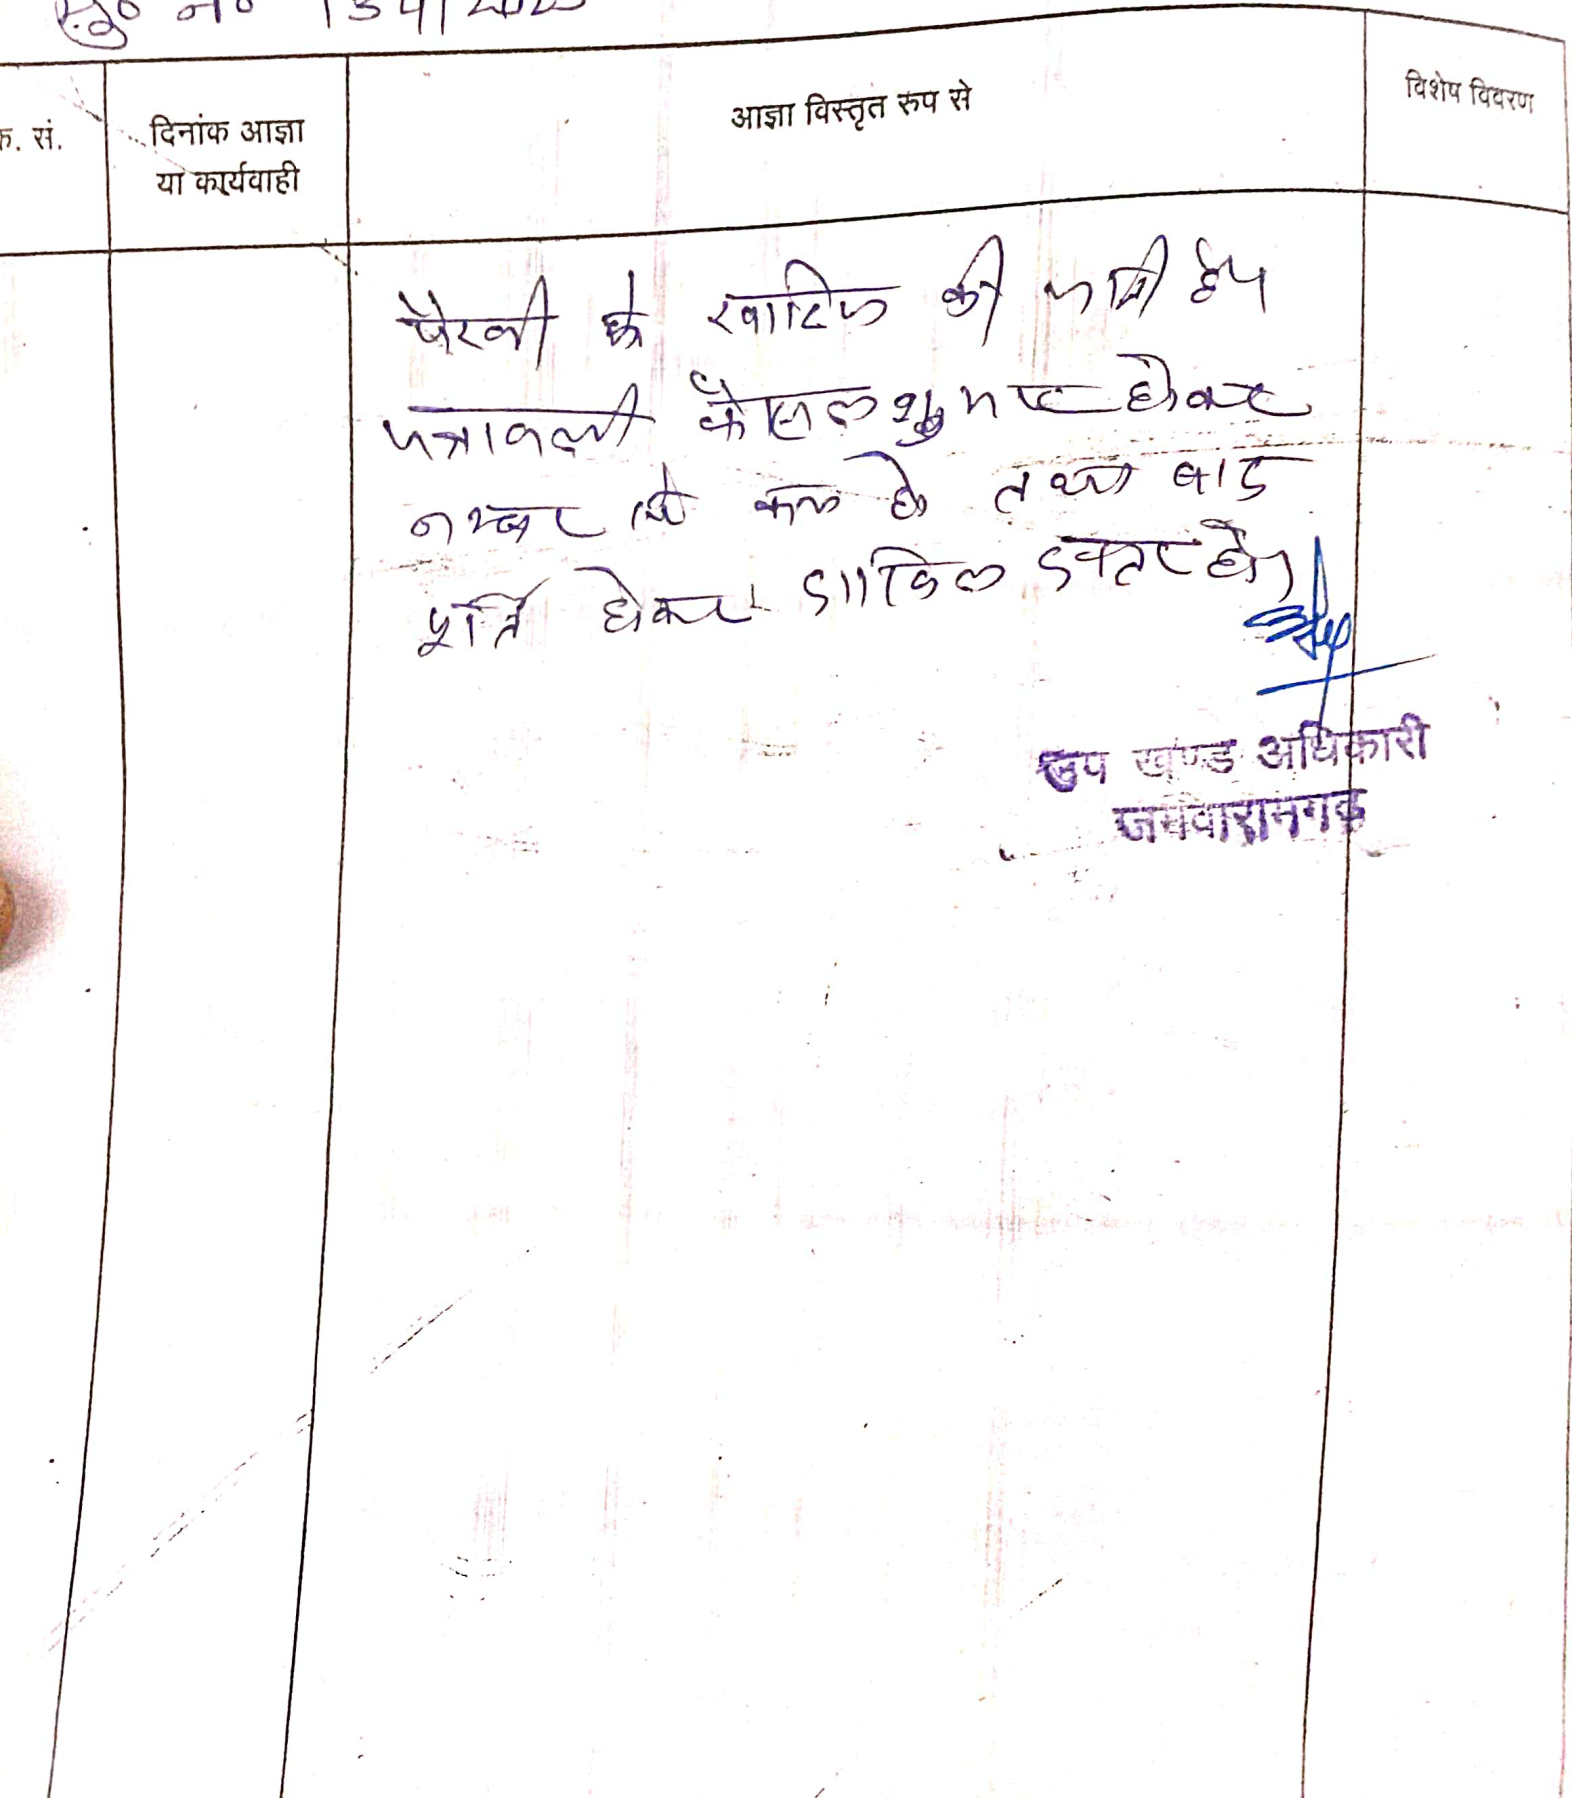 मु० न०
क्र. सं. दिनांक आज्ञा या कार्यवाही आज्ञा विस्तृत रुप से विशेष विवरण
पैरवी के खारिज की जाती है।
पत्रावली फैसल शुमार होकर
नम्बर से कम हो तथा बाद
पूर्ति होकर दाखिल दफ्तर हो।
उप खण्ड अधिकारी
जमवारामगढ़